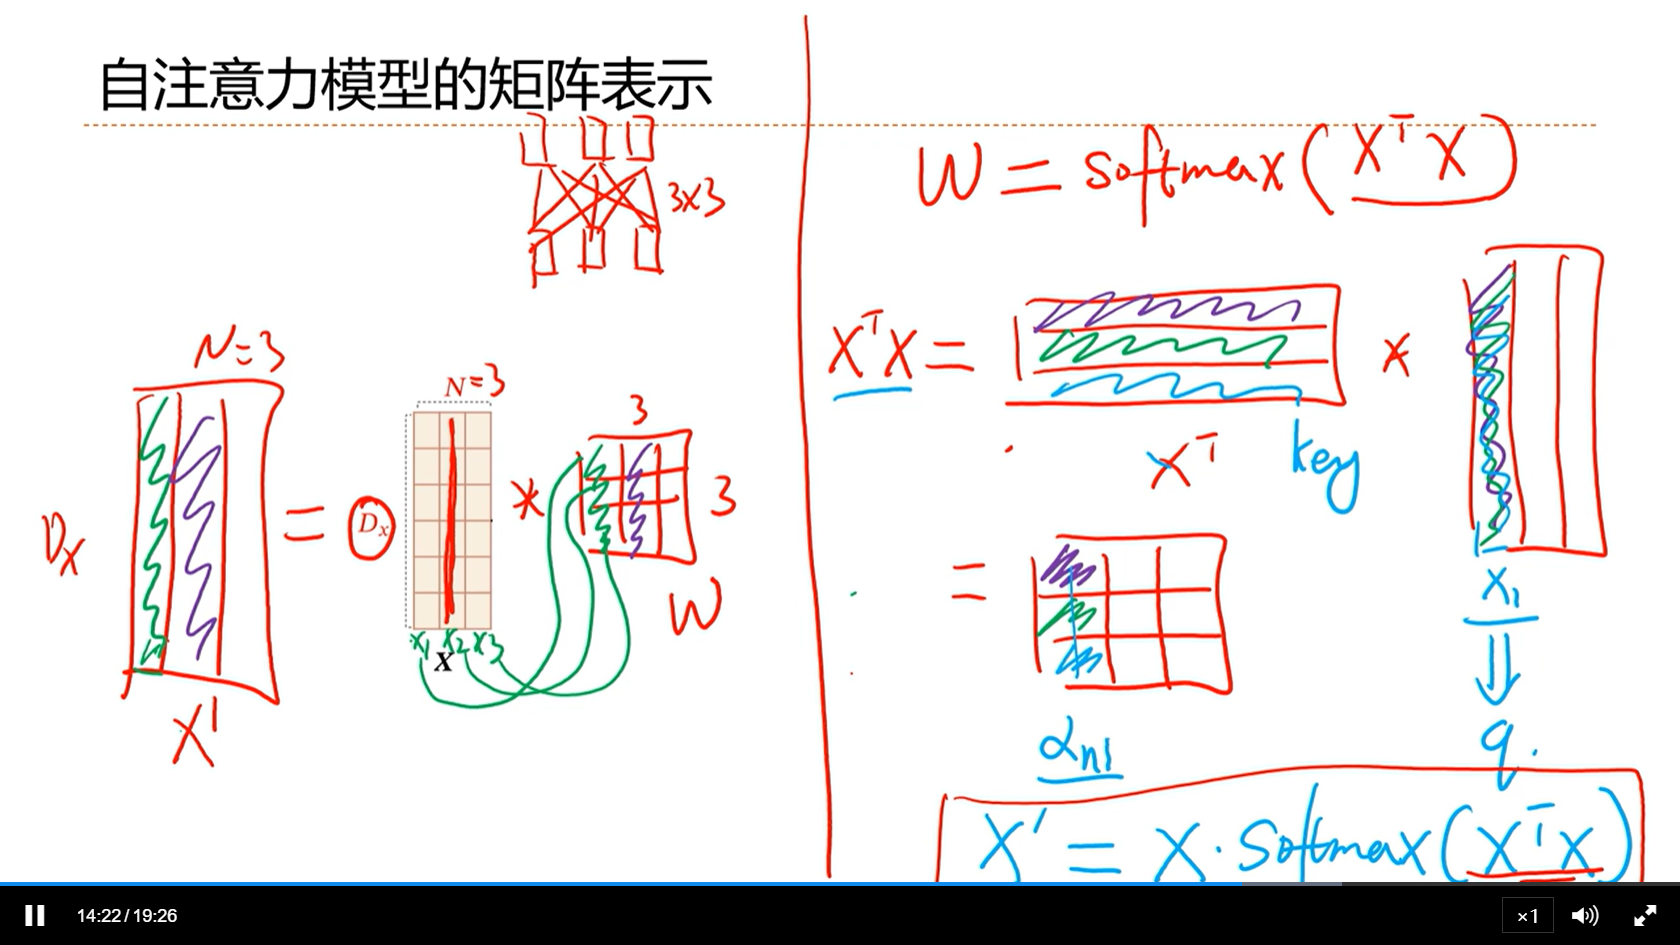 自注意力模型的矩阵表示
3x3
N=3
Dx
=
Dx
N=3
x1 x2 x3
X
*
3
3
W
X'
W = softmax(XᵀX)
XᵀX = 
×
Xᵀ
key
x1
q.
=
αn1
X' = X·Softmax(XᵀX)
14:22 / 19:26
×1